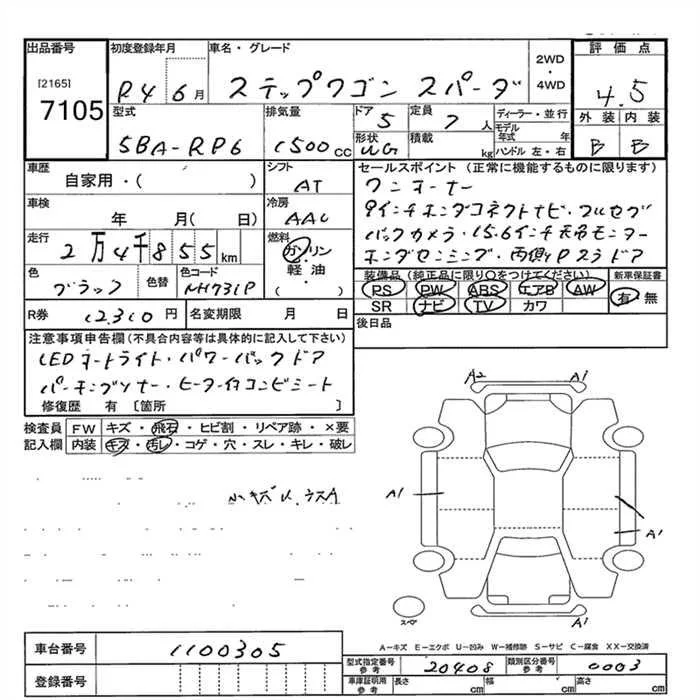 出品番号 初度登録年月 車名・グレード 評価点
[2165]
7105
R4 6月 ステップワゴン スパーダ
2WD
・
4WD
4.5
型式 排気量 ドア 定員 ディーラー・並行 外装 内装
5BA-RP6 1500cc 5 7人 モデル年式 年
形状 積載 ハンドル 左・右
WG kg B B
車歴 シフト セールスポイント (正常に機能するものに限ります)
自家用・( ) AT ワンオーナー
車検 冷房 9インチホンダコネクトナビ・フルセグ
年 月( 日) AAC バックカメラ・15.6インチ天吊モニター
走行 燃料 ホンダセンシング・両側Pスラドア
2万4千855km ガソリン
軽油・
( )
色 色替 色コード 装備品 (純正品に限り○をつけてください) 新車保証書
ブラック NH731P PS PW ABS エアB AW 有・無
SR ナビ TV カワ
R券 12310円 名変期限 月 日 後日品
注意事項申告欄(不具合内容等は具体的に記入して下さい)
LEDオートライト・パワーバックドア
パーキングソナー・ヒーター付コンビシート
修復歴 有 〔箇所 〕
検査員 FW キズ・飛石・ヒビ割・リペア跡・×要
記入欄 内装 キズ・汚レ・コゲ・穴・スレ・キレ・破レ
A2 A1
A1
A1
A1
スペア
A-キズ E-エクボ U-凹み W-補修跡 S-サビ C-腐食 XX-交換済
車台番号 1100305
登録番号
型式指定番号 参考 20408 類別区分番号 参考 0003
車庫証明用 参考 長さ cm 幅 cm 高さ cm